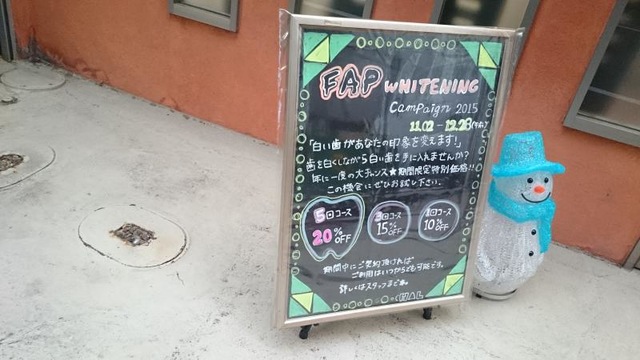 FAP WHITENING
Campaign 2015
11.02 - 12.28
「白い歯があなたの印象を変えます!」
歯を白くしながら白い歯を手に入れませんか?
年に一度の大チャンス★期間限定特別価格!!
この機会にぜひお試し下さい。
5回コース
20% OFF
3回コース
15% OFF
1回コース
10% OFF
期間中にご契約頂ければ
ご利用はいつからでも可能です。
詳しくはスタッフまで
HAL